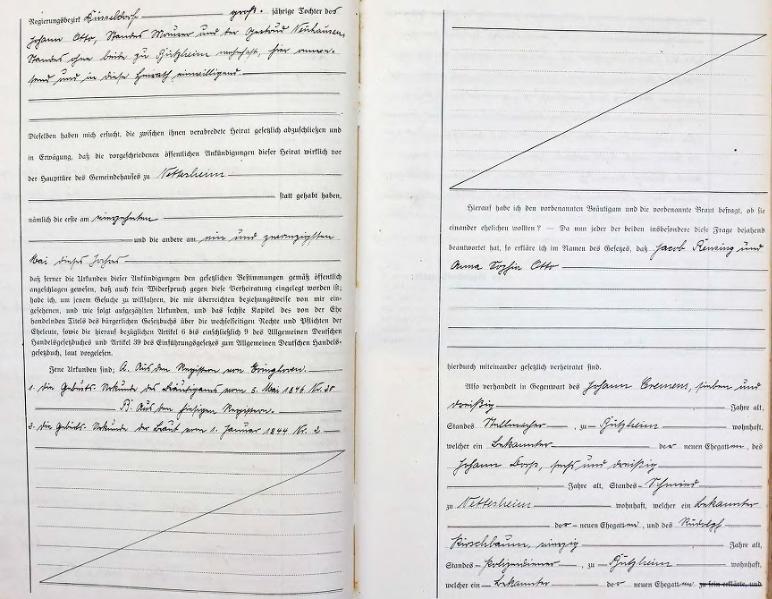 Regierungsbezirk Düsseldorf groß- jährige Tochter des
Johann Otto, Standes Maurer und der Gertrud Neuhausen,
Standes ohne beide zu Gützheim wohnhaft, hier anwe-
send und in diese Heirath einwilligend.
Dieselben haben mich ersucht, die zwischen ihnen verabredete Heirat gesetzlich abzuschließen und
in Erwägung, daß die vorgeschriebenen öffentlichen Ankündigungen dieser Heirat wirklich vor
der Haupttüre des Gemeindehauses zu Nettesheim
statt gehabt haben,
nämlich die erste am
und die andere am ein und zwanzigsten
Mai dieses Jahres
daß ferner die Urkunden dieser Ankündigungen den gesetzlichen Bestimmungen gemäß öffentlich
angeschlagen gewesen, daß auch kein Widerspruch gegen diese Verheiratung eingelegt worden ist;
habe ich, um jenem Gesuche zu willfahren, die mir überreichten beziehungsweise von mir ein-
gesehenen, und wie folgt aufgezählten Urkunden, und das sechste Kapitel des von der Ehe
handelnden Titels des bürgerlichen Gesetzbuchs über die wechselseitigen Rechte und Pflichten der
Eheleute, sowie die hierauf bezüglichen Artikel 6 bis einschließlich 9 des Allgemeinen Deutschen
Handelsgesetzbuches und Artikel 39 des Einführungsgesetzes zum Allgemeinen Deutschen Handels-
gesetzbuch, laut vorgelesen.
Jene Urkunden sind; A. Aus den Registern von
1. die Geburts-Urkunde des Bräutigams vom 5. Mai 1846 Nr.
B. Aus den hiesigen Registern.
2. die Geburts-Urkunde der Braut vom 1. Januar 1844 Nr. 2
Hierauf habe ich den vorbenannten Bräutigam und die vorbenannte Braut befragt, ob sie
einander ehelichen wollten? — Da nun jeder der beiden insbesondere diese Frage bejahend
beantwortet hat, so erkläre ich im Namen des Gesetzes, daß Jacob und
Anna Sophia Otto
hierdurch miteinander gesetzlich verheiratet sind.
Also verhandelt in Gegenwart des Johann Cremens, sieben und
dreißig Jahre alt,
Standes Stellmacher, zu Gützheim wohnhaft,
welcher ein Bekannter der neuen Ehegatten, des
Johann, sechs und dreißig
Jahre alt, Standes Schmied
zu Nettesheim wohnhaft, welcher ein Bekannter
der neuen Ehegatten, und des Rudolf
Kirschbaum, vierzig Jahre alt,
Standes Polizeidiener, zu Gützheim wohnhaft,
welcher ein Bekannter der neuen Ehegatten zu sein erklärte, und